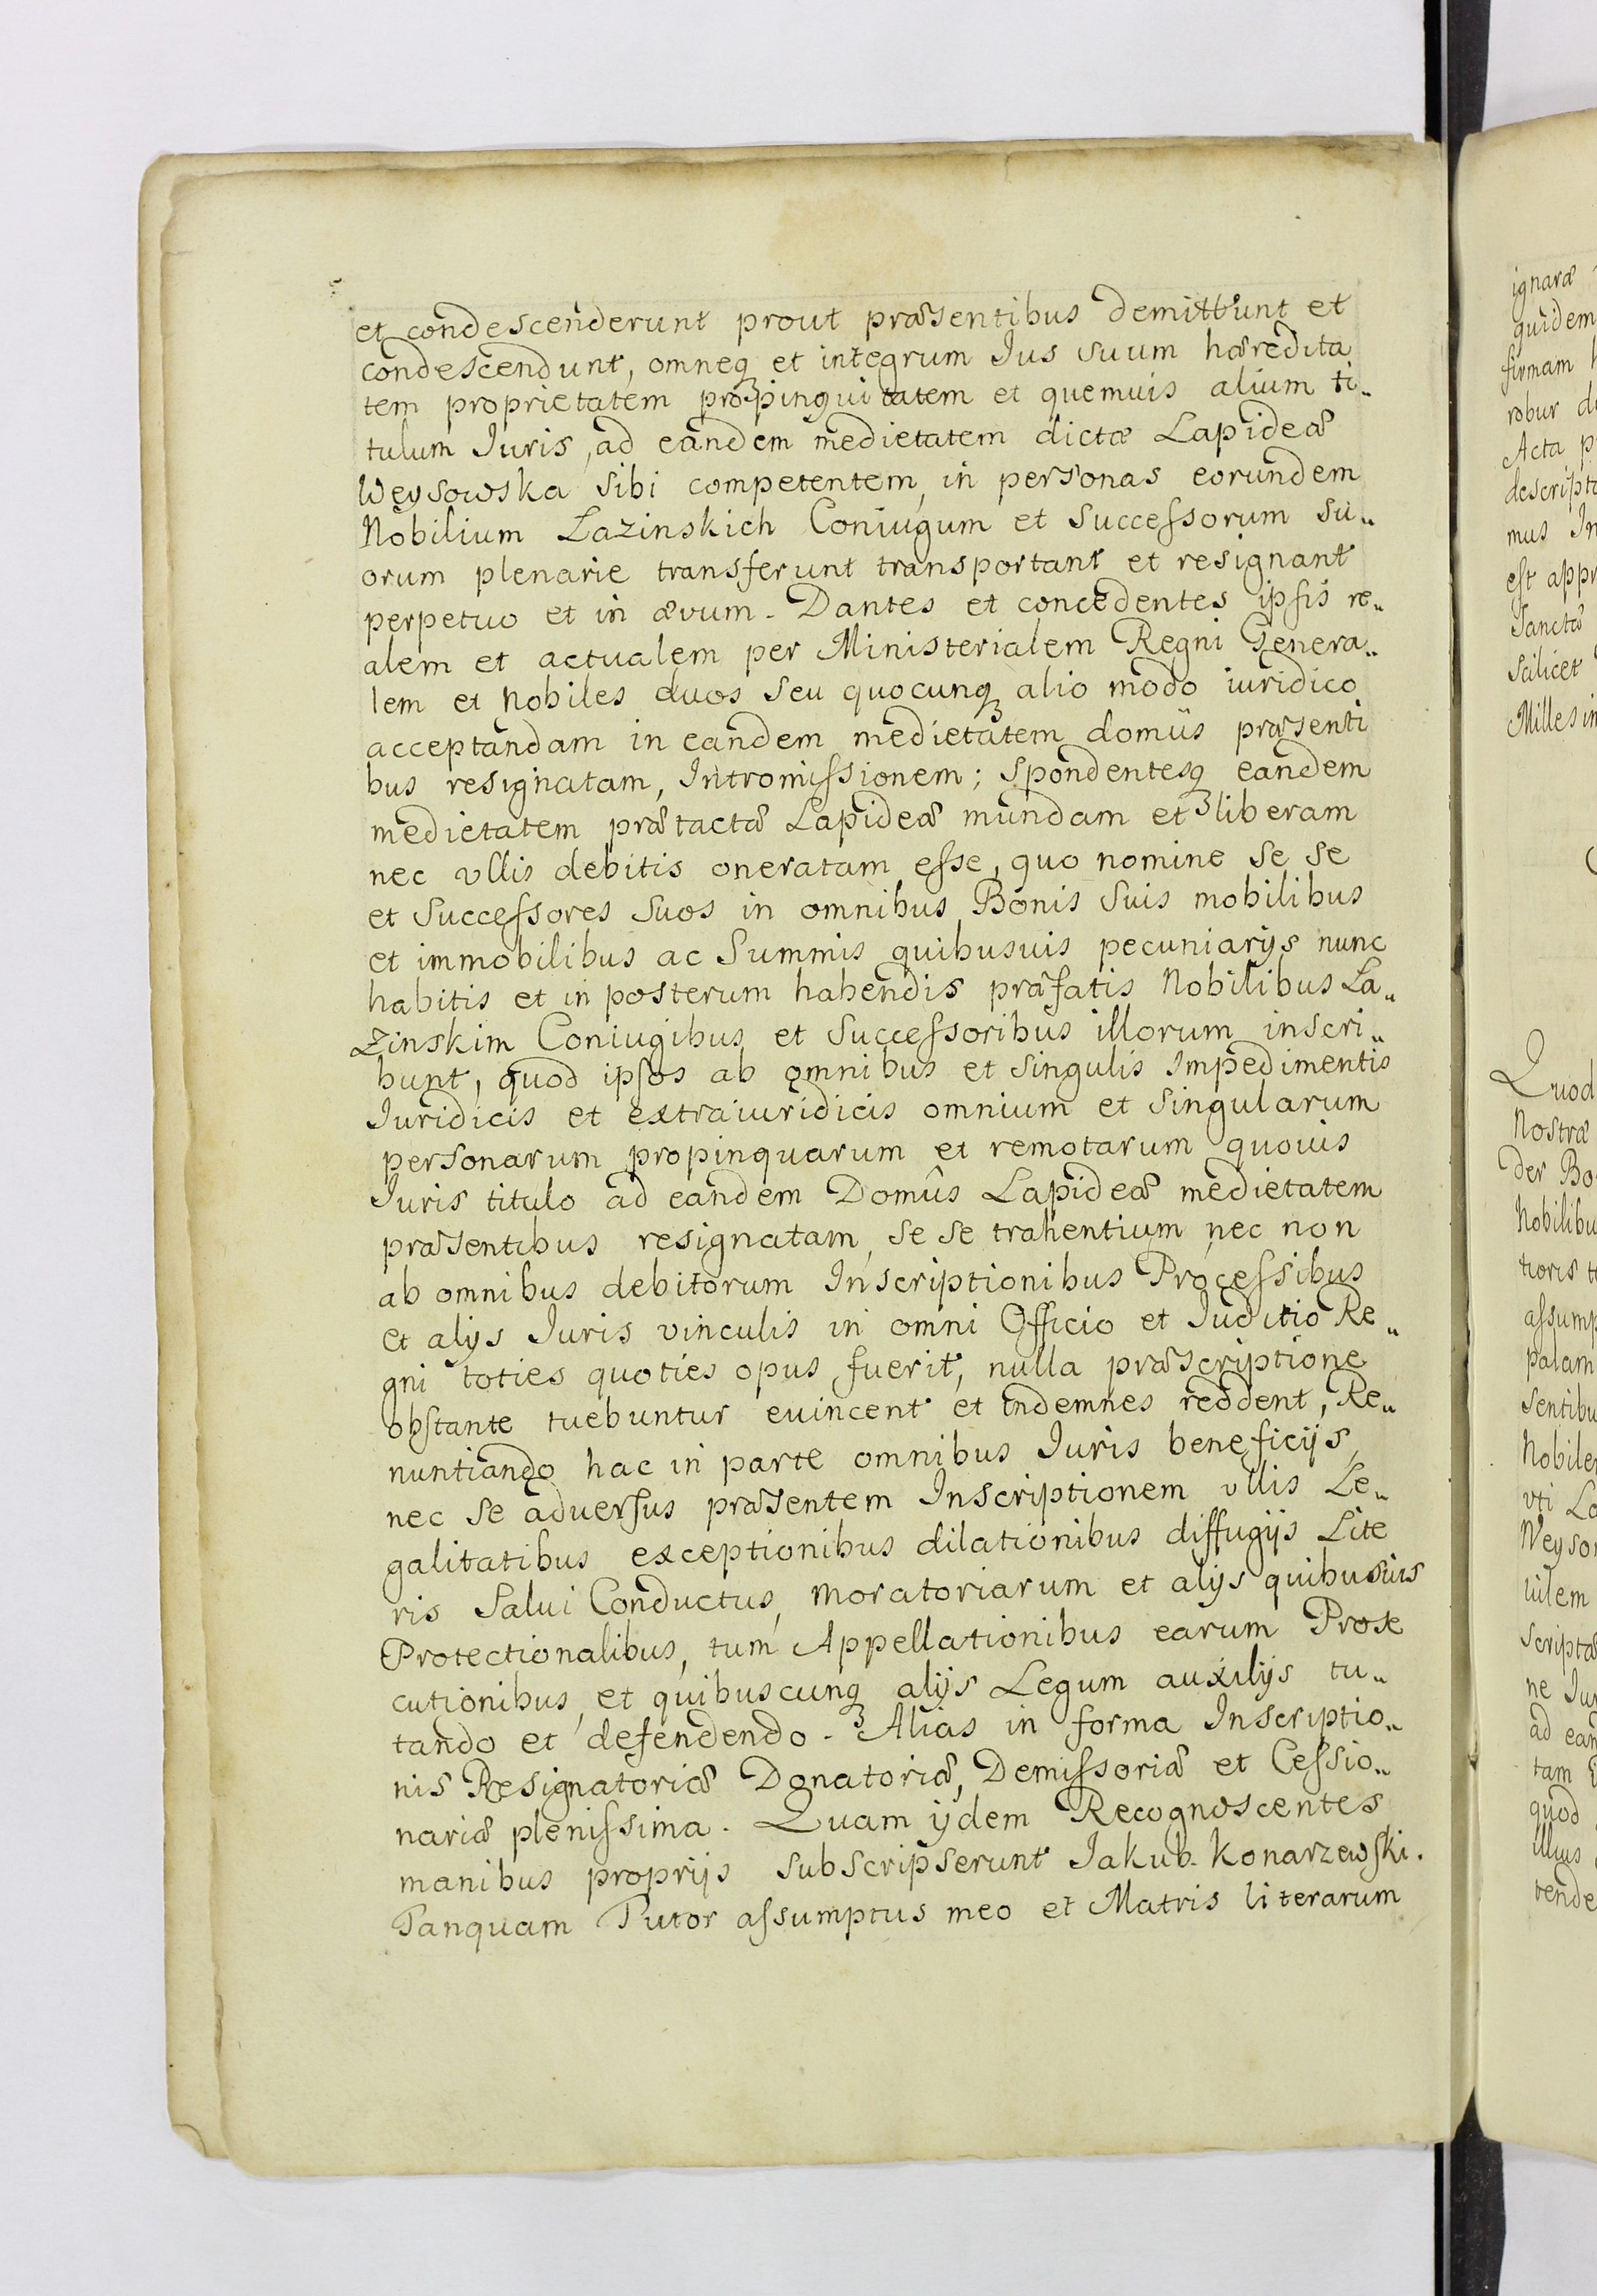 et condescenderunt prout præsentibus demittunt et
condescendunt, omneq̃ et integrum Ius suum hæredita
tem proprietatem propinquitatem et quemuis alium ti„
tulum Iuris, ad eandem medietatem dictæ Lapideæ
Weysowska sibi competentem, in personas eorundem
Nobilium Łazinskich Coniugum et Successorum Su„
orum plenarie transferunt transportant et resignant
perpetuo et in ævum. Dantes et concedentes ipsis re„
alem et actualem per Ministerialem Regni Genera„
lem et Nobiles duos seu quocunq̃ alio modo iuridico
acceptandam in eandem medietatem domûs præsenti
bus resignatam, Intromissionem; Spondentesq̃ eandem
medietatem prætactæ Lapideæ mundam et liberam
nec vllis debitis oneratam esse, quo nomine se se
et Successores suos in omnibus Bonis Suis mobilibus
et immobilibus ac Summis quibusuis pecuniarijs nunc
habitis et in posterum habendis præfatis Nobilibus Ła„
zinskim Coniugibus et Successoribus illorum inscri„
bunt, quod ipsos ab omnibus et singulis Impedimentis
Iuridicis et extraiuridicis omnium et singularum
personarum propinquarum et remotarum quouis
Iuris titulo ad eandem Domûs Lapideæ medietatem
præsentibus resignatam, se se trahentium nec non
ab omnibus debitorum Inscriptionibus Processibus
et alijs Iuris vinculis in omni Officio et Iuditio Re„
gni toties quoties opus fuerit, nulla præscriptione
obstante tuebuntur euincent et indemnes reddent, Re„
nuntiando hac in parte omnibus Iuris beneficijs,
nec se aduersus præsentem Inscriptionem vllis Le„
galitatibus exceptionibus dilationibus diffugijs Lite
ris Salui Conductus, Moratoriarum et alijs quibusuis
Protectionalibus, tum Appellationibus earum Prose
cutionibus, et quibuscunq̃ alijs Legum auxilijs tu„
tando et defendendo. Alias in forma Inscriptio„
nis Resignatoriæ Donatoriæ, Demissoriæ et Cessio„
nariæ plenissima. Quam ijdem Recognoscentes
manibus proprijs subscripserunt Iakub Konarzewski.
Tanquam Tutor assumptus meo et Matris literarum
ignaræ
quidem
firmam
robur
Acta
descript
mus In
est appr
Sanctæ
Scilicet
Millesim
Quod
Nostræ
der Bo
Nobilibu
tioris
assump
palam
sentibu
Nobile
vti La
Weyso
uilem
scriptæ
ne Iu
ad ean
tam
quod
illius
tende